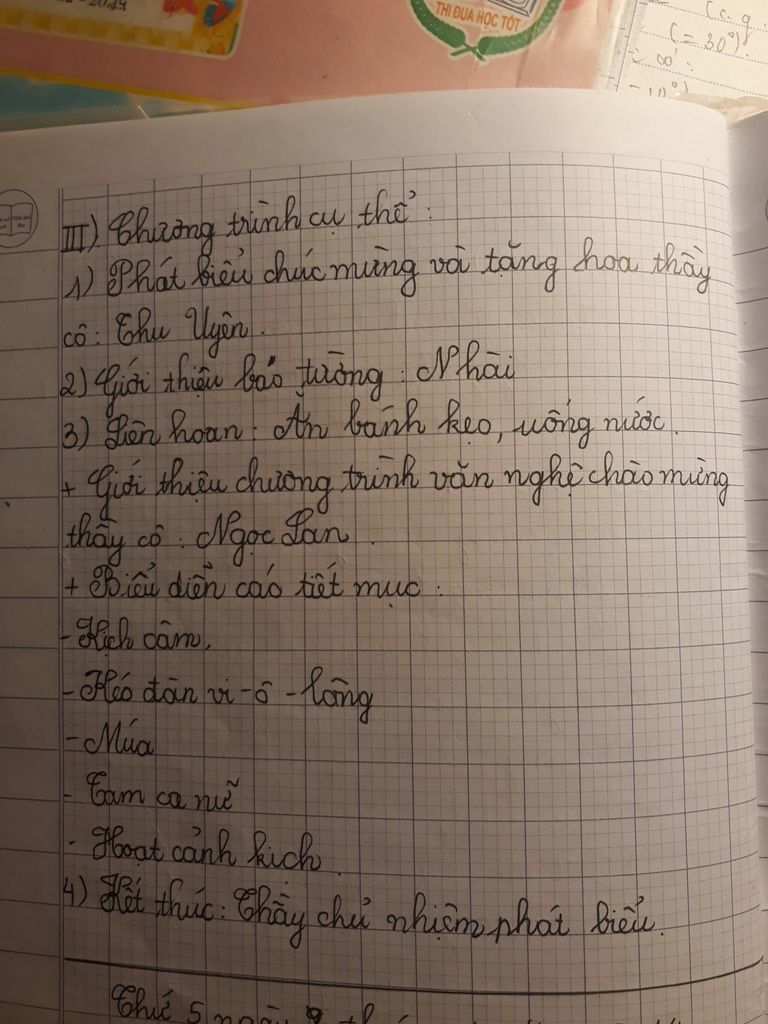 2024
THI ĐUA HỌC TỐT
(= 30°)
III) Chương trình cụ thể:
1) Phát biểu chúc mừng và tặng hoa thầy
cô: Thu Uyên.
2) Giới thiệu báo tường: Nhài
3) Liên hoan: Ăn bánh kẹo, uống nước.
+ Giới thiệu chương trình văn nghệ chào mừng
thầy cô: Ngọc Lan.
+ Biểu diễn các tiết mục:
- Kịch câm,
- Kéo đàn vi-ô-lông
- Múa
- Tam ca nữ
- Hoạt cảnh kịch.
4) Kết thúc: Thầy chủ nhiệm phát biểu.
Thứ 5 ngày 9